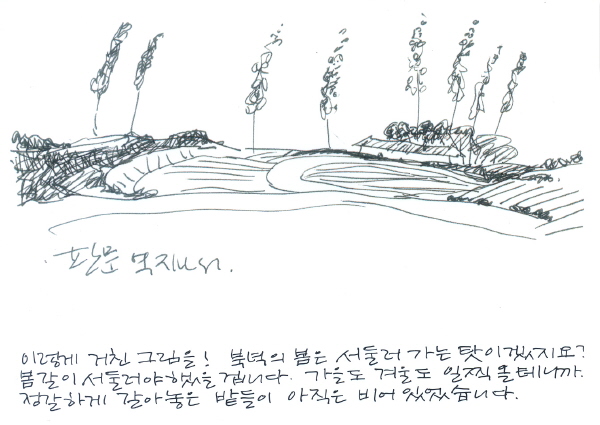 판문 역 지나서.
이렇게 거친 그림을! 북녘의 봄은 서둘러 가는 탓이겠지요?
봄갈이 서둘러야 했을 겁니다. 가을도 겨울도 일찍 올테니까.
정갈하게 갈아놓은 밭들이 아직은 비어 있었습니다.